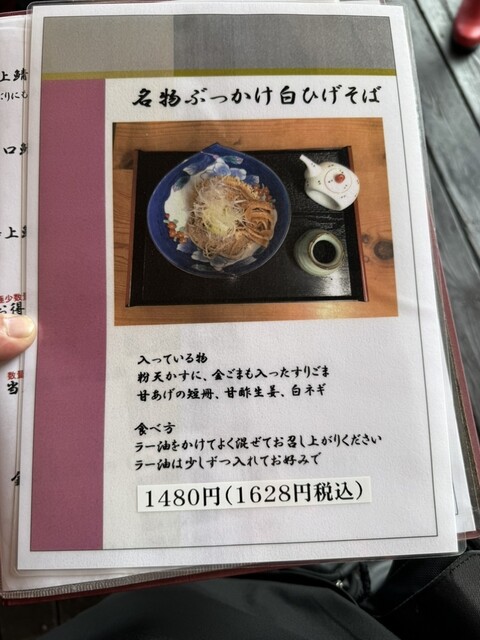 名物ぶっかけ白ひげそば
入っている物
粉天かすに、金ごまも入ったすりごま
甘あげの短冊、甘酢生姜、白ネギ
食べ方
ラー油をかけてよく混ぜてお召し上がりください
ラー油は少しずつ入れてお好みで
1480円(1628円税込)
上鯖
口鯖
上
少数
得
数
当